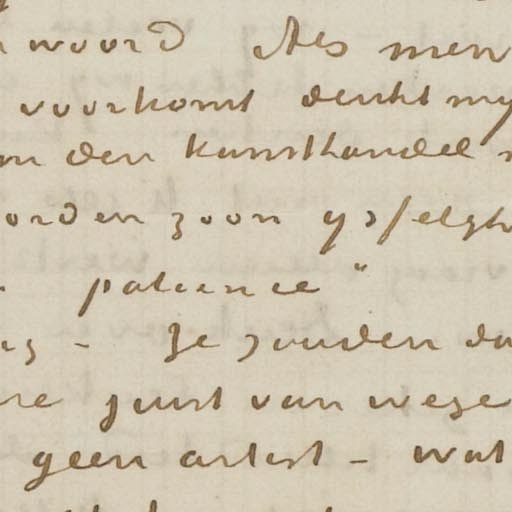 woord Als men
voorkomt denkt my
den kunsthandel
orden zoon ysselyk
patience"
- Ze zouden da
juist van wege
geen artist - wat